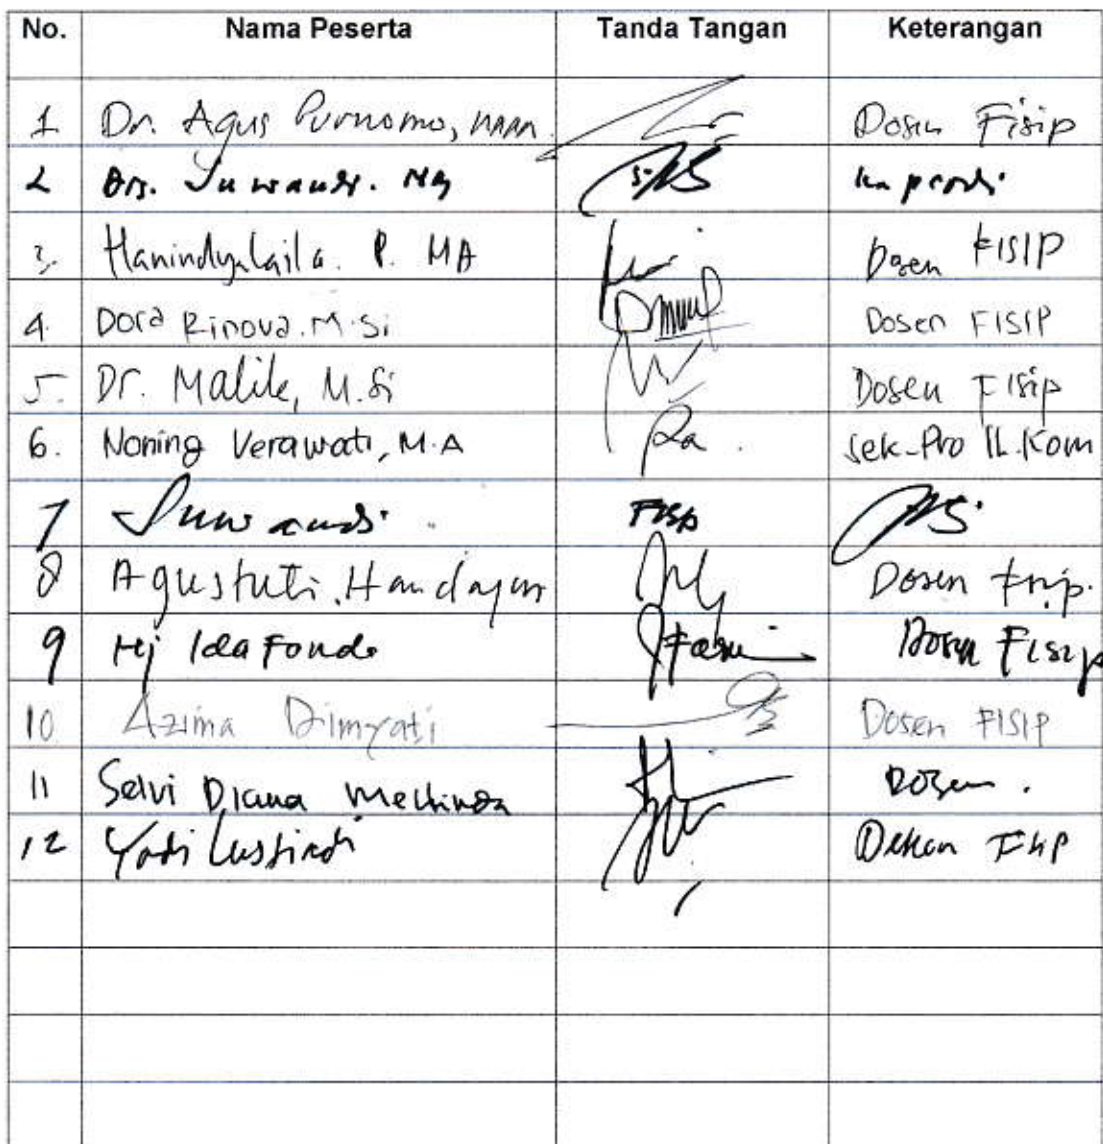 No. Nama Peserta Tanda Tangan Keterangan
1. Dr. Agus Purnomo, Dosen Fisip
2 Drs. Suwandi. Kaprodi
3. Hanindyalaila. P. MA Dosen FISIP
4. Dora Rinova. M.Si Dosen FISIP
5. Dr. Malik, M.Si Dosen FISip
6. Noning Verawati, M.A Sek-Pro Il.Kom
7 Suwandi FISIP
8 Agustuti. Handayani Dosen Fisip.
9 Hj Ida Farida Dosen FISIP
10. Azima Dimyati Dosen FISIP
11 Selvi Diana Meilinda Dosen.
12 Yadi Lustiadi Dekan